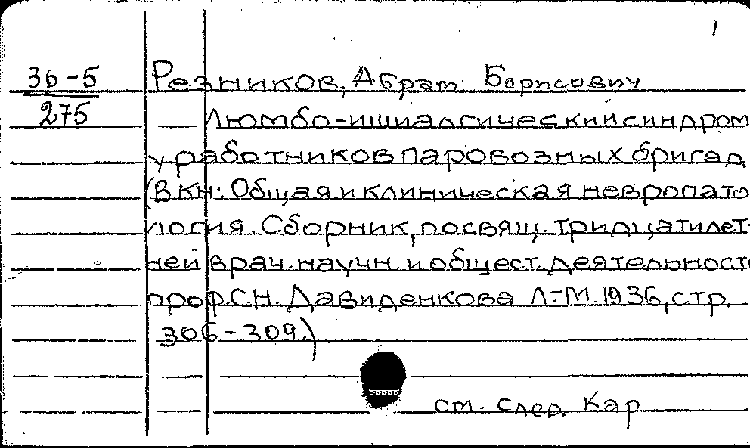 1
36-5
275
Резников, Абрам Борисович
Люмбо-ишиалгический синдром
у работников паровозных бригад
(В кн: Общая и клиническая невропато
логия. Сборник, посвящ. тридцатилет-
ней врач. научн. и общест. деятельност
проф. С.Н. Давиденкова Л-М. 1936, стр.
306-309.)
см. след. кар